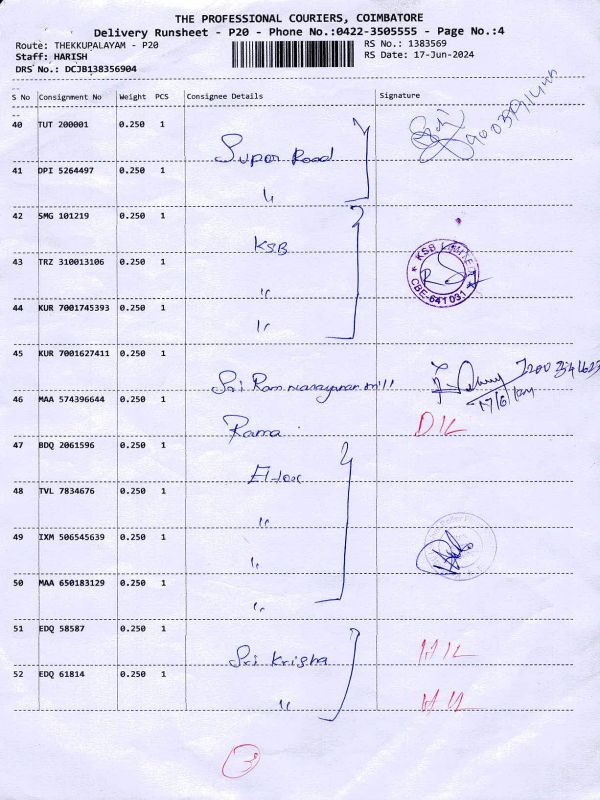 THE PROFESSIONAL COURIERS, COIMBATORE
Delivery Runsheet - P20 - Phone No.:0422-3505555 - Page No.:4
Route: THEKKUPALAYAM - P20 RS No.: 1383569
Staff: HARISH RS Date: 17-Jun-2024
DRS No.: DCJB138356904
S No Consignment No Weight PCS Consignee Details Signature
40 TUT 200001 0.250 1
Super Road
41 DPI 5264497 0.250 1
"
42 SMG 101219 0.250 1
KSB
43 TRZ 310013106 0.250 1 KSB LIMITED CBE-641 031
"
44 KUR 7001745393 0.250 1
"
45 KUR 7001627411 0.250 1
Sri Ram narayanan mill
17/6/
46 MAA 574396644 0.250 1
Rama D/L
47 BDQ 2061596 0.250 1
48 TVL 7834676 0.250 1
"
49 IXM 506545639 0.250 1
"
50 MAA 650183129 0.250 1
"
51 EDQ 58587 0.250 1
Sri Krisha
52 EDQ 61814 0.250 1
"
3